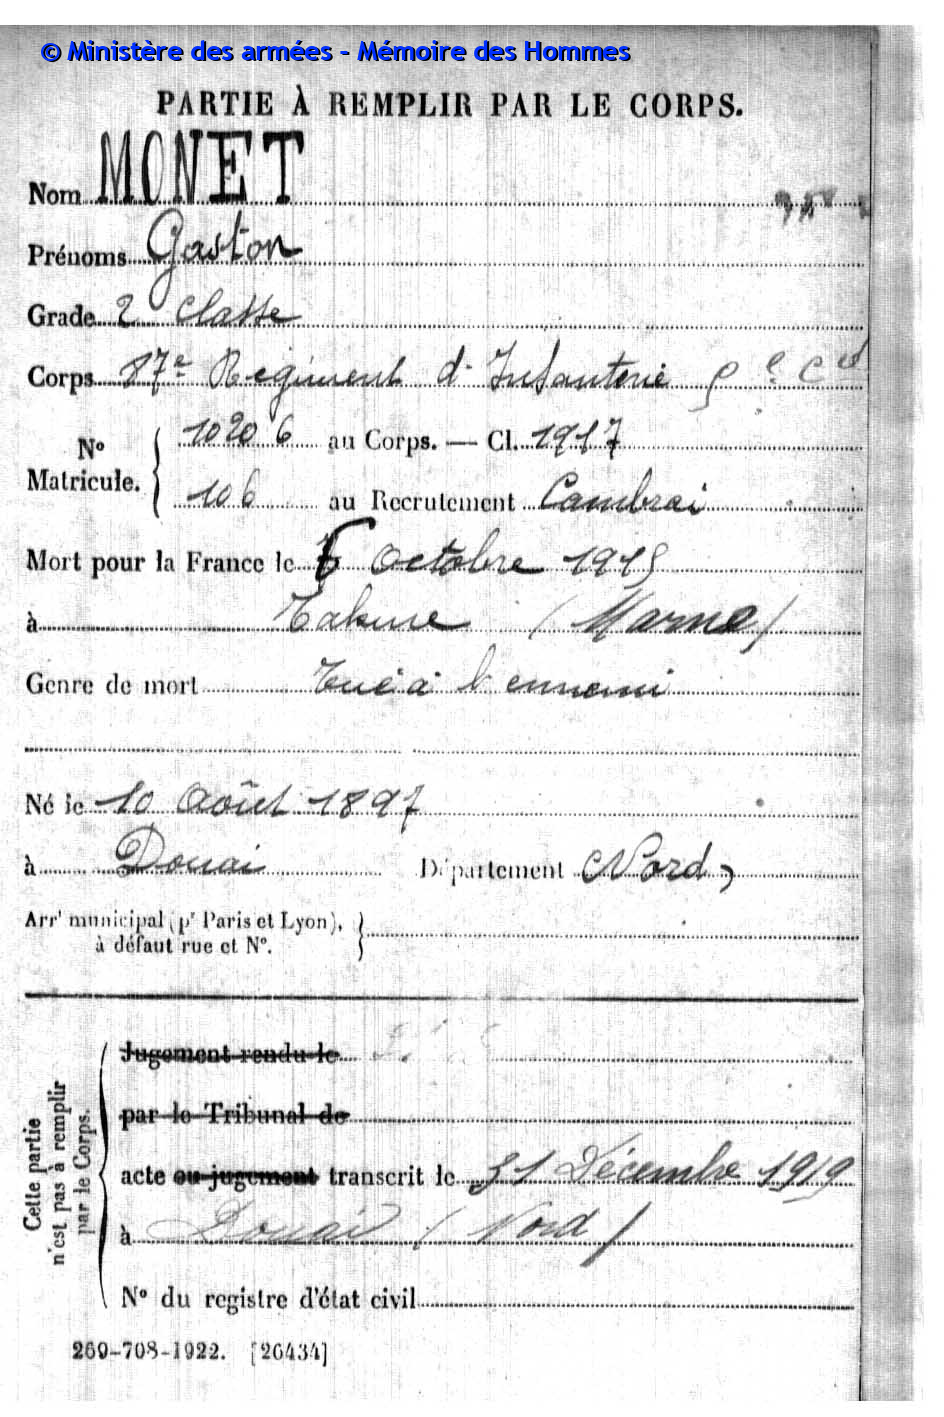 © Ministère des armées - Mémoire des Hommes
PARTIE À REMPLIR PAR LE CORPS.
Nom MONET
Prénoms Gaston
Grade 2 Classe
Corps 87e Régiment d'Infanterie
No Matricule. { 10206 au Corps. — Cl. 1917
106 au Recrutement Cambrai
Mort pour la France le 6 Octobre 1915
à Tahure (Marne)
Genre de mort Tué à l'ennemi
Né le 10 Août 1897
à Douai Département Nord
Arrt municipal (pr Paris et Lyon), à défaut rue et No. }
Cette partie n'est pas à remplir par le Corps.
Jugement rendu le
par le Tribunal de
acte ou jugement transcrit le 31 Décembre 1919
à Douai (Nord)
No du registre d'état civil
269-708-1922. [26434]